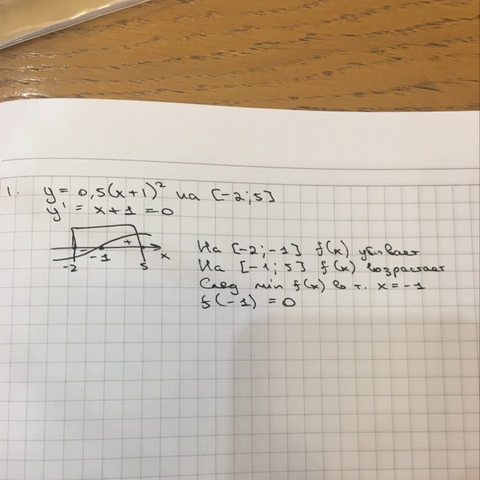 1. y = 0,5(x+1)² на [-2;5]
y' = x+1 = 0
- + 
-2 -1 5 x
На [-2;-1] f(x) убывает
На [-1;5] f(x) возрастает
След min f(x) в т. x=-1
f(-1) = 0